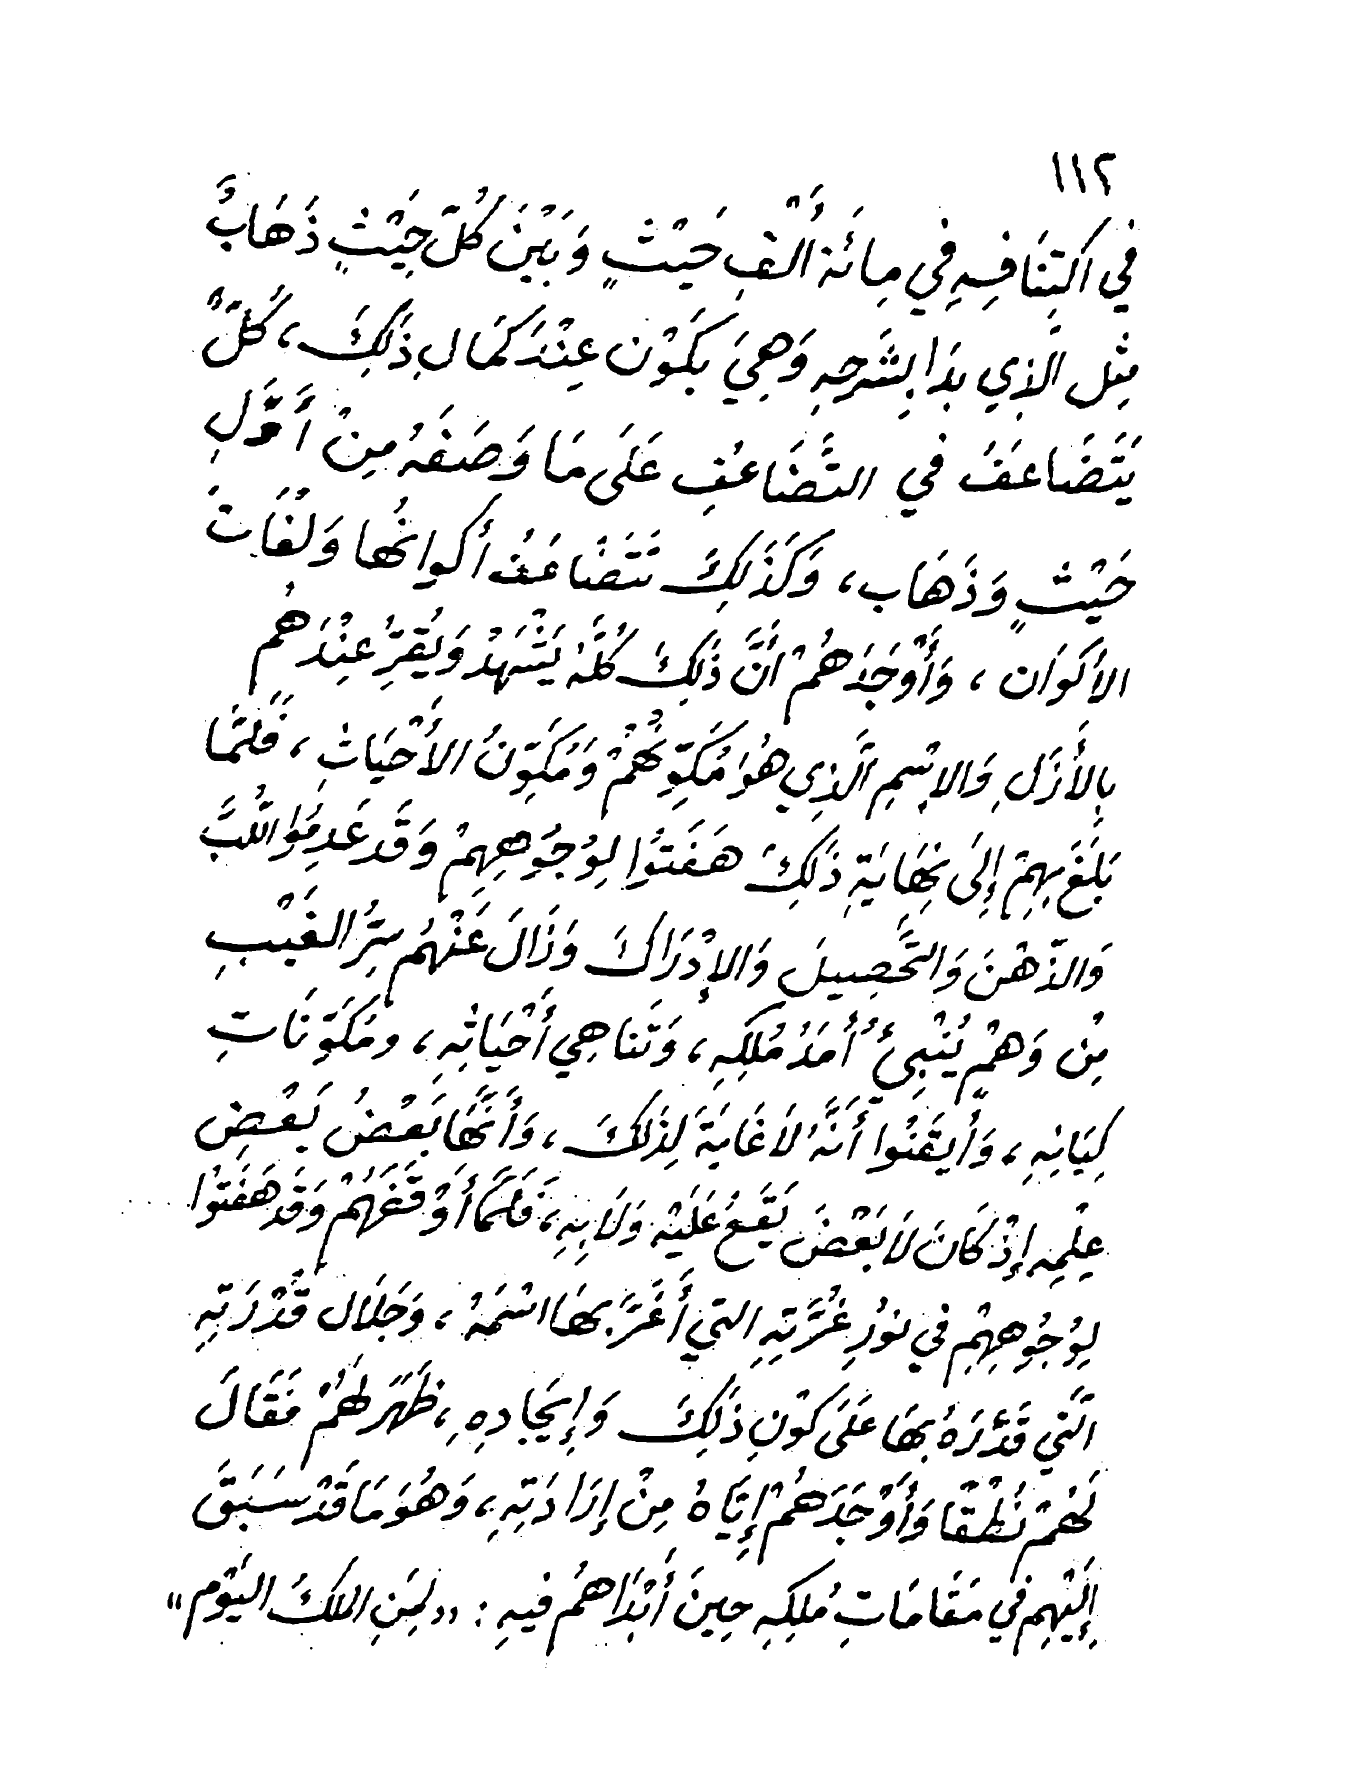 ١١٢
في اكْتِنَافِسِهِ فِي مِائَة أَلْفِ حَيْثٍ وَبَيْنَ كُلّ حَيْثٍ ذَهَابٌ
مِثْل الَّذِي بدَا بِشَرحِهِ وَهِيَ يَكَوْن عِنْدَ كَمَالِ ذَلِكَ، كُلٌّ
يَتَضَاعَفُ في التَّضَاعُفِ عَلَى مَا وَصَفَهُ مِنْ أَوَّلِ
حَيْثٍ وَذَهَاب، وَكَذَلِكَ تَتَضَاعَفُ أكوانُها وَلُغَات
الأكَوَان، وَأَوْجَدَهُمْ أنَّ ذَلِكَ كُلَّهُ يَشْهَدُ وَيُقِرُّ عِنْدَهُم
بِالأَزَلِ وَالاسْمِ الَّذِي هُوَ مُكَوِّنُهُمْ وَمُكَوِّنُ الأَحْيَاثِ، فَلَمَّا
بَلَغَ بِهِمْ إِلَى نِهَايَةِ ذَلِكَ هَفَتُوا لِوُجُوهِهِمْ وَقَد عَدِمُوا اللُّبَّ
وَالذّهْنَ وَالتَّحْصِيلَ وَالإِدْرَاكَ وَزَالَ عَنْهُم سِرُّ الغَيْبِ
مِنْ وَهْمٍ يُنْبِئُ أَمَدُ مُلكِهِ، وَتَناهِي أَحْيَاثِهِ، ومُكَوّنَاتِ
كِيَانِهِ، وَأيقَنُوا أَنَّهُ لاَ غَايَةَ لِذَلكَ، وَأَنَّهَا بَعْضُ بَعْضِ
عِلْمِهِ إِذْ كَانَ لاَ بَعْضَ يَقَعُ عَلَيْهِ وَلاَ بِهِ، فَلَمَّا أَوْقَفَهُمْ وَقَد هَفَتُوا
لِوُجُوهِهِمْ في نوُرِ غُرَّتِهِ التي أَغَرَّ بهَا اسْمَهُ، وَجَلاَل قُدْرَتِهِ
الَّتي قَدَّرَهُ بِهَا عَلَى كَوْنِ ذَلِكَ وَإِيجَادِهِ، ظَهَرَ لَهُمْ فَقَالَ
لَهُمْ نُطْقًا وَأَوْجَدَهُمْ إِيَّاهُ مِنْ إِرَادَتِهِ، وَهُوَ مَا قَدْ سَبَقَ
إِلَيْهِم في مَقَامَاتِ مُلكِهِ حِينَ أَبْدَاهُم فيهِ: «لِمَنِ المُلكُ اليَوْم»